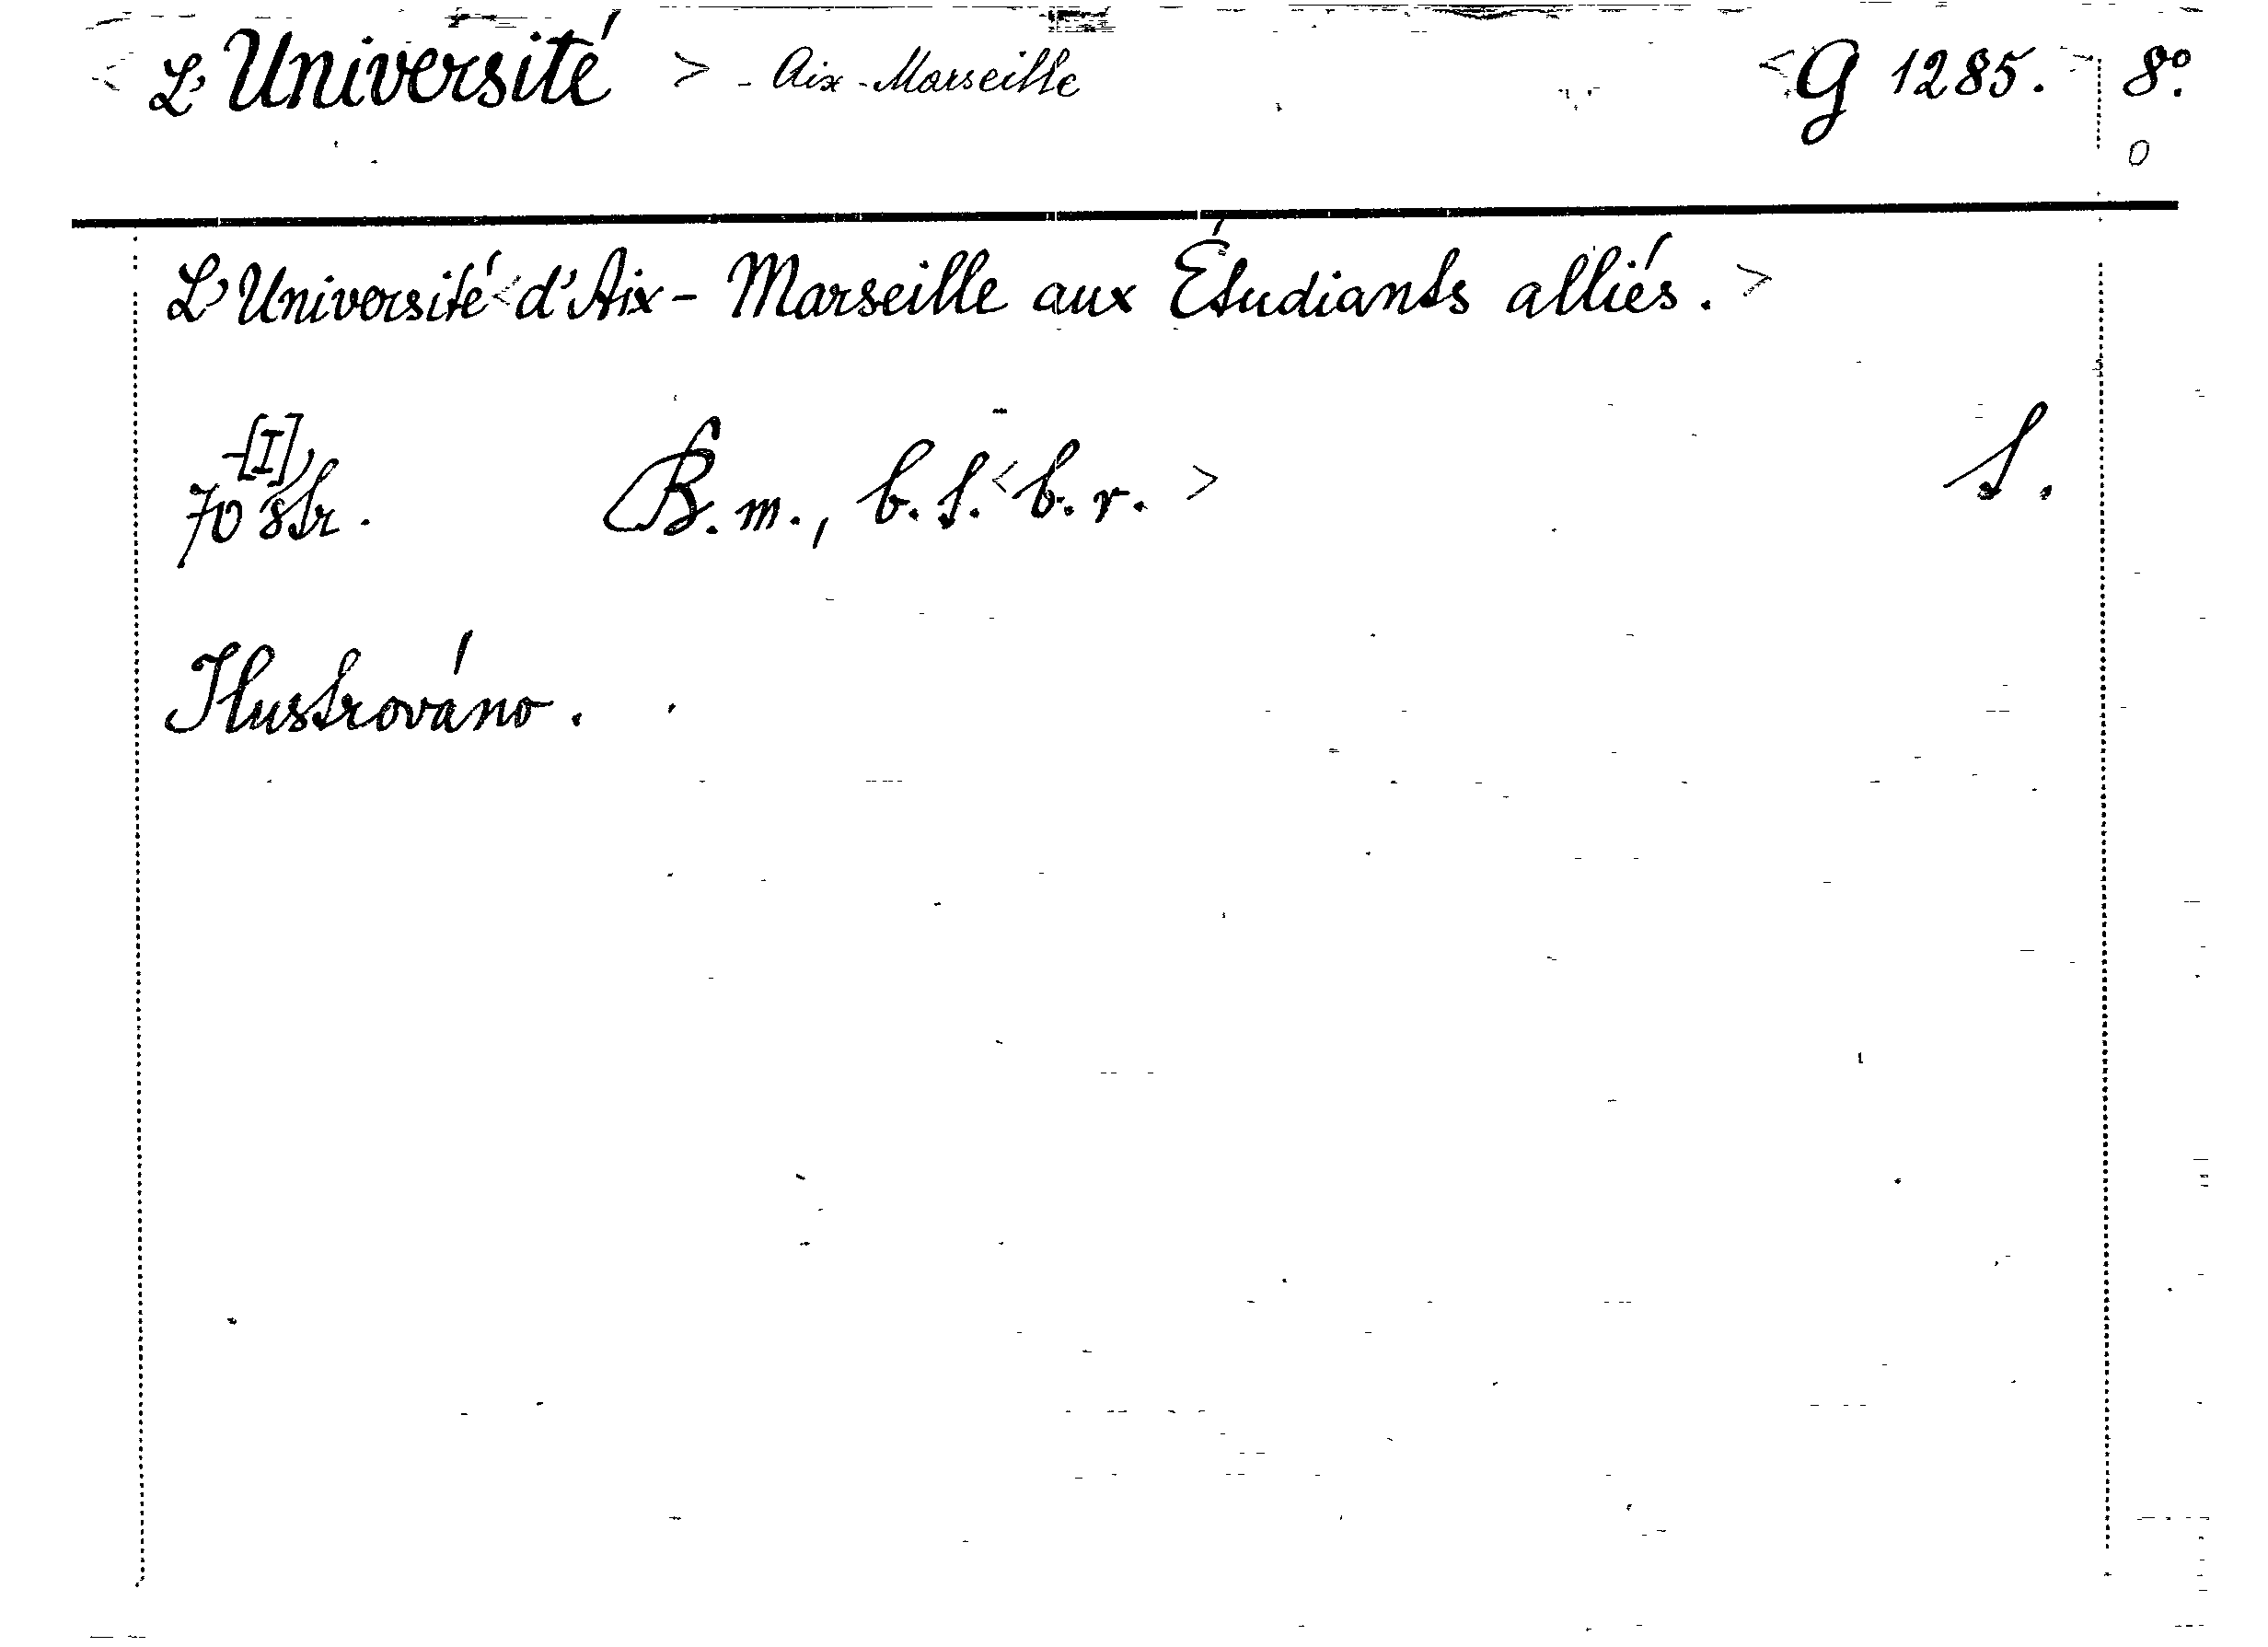 < L'Université > - Aix-Marseille <G 1285.> 8°.
0
L'Université <d'Aix-Marseille aux Étudiants alliés.>
70-[I], str. B. m., b. t. <b. r.>
Ilustrováno.